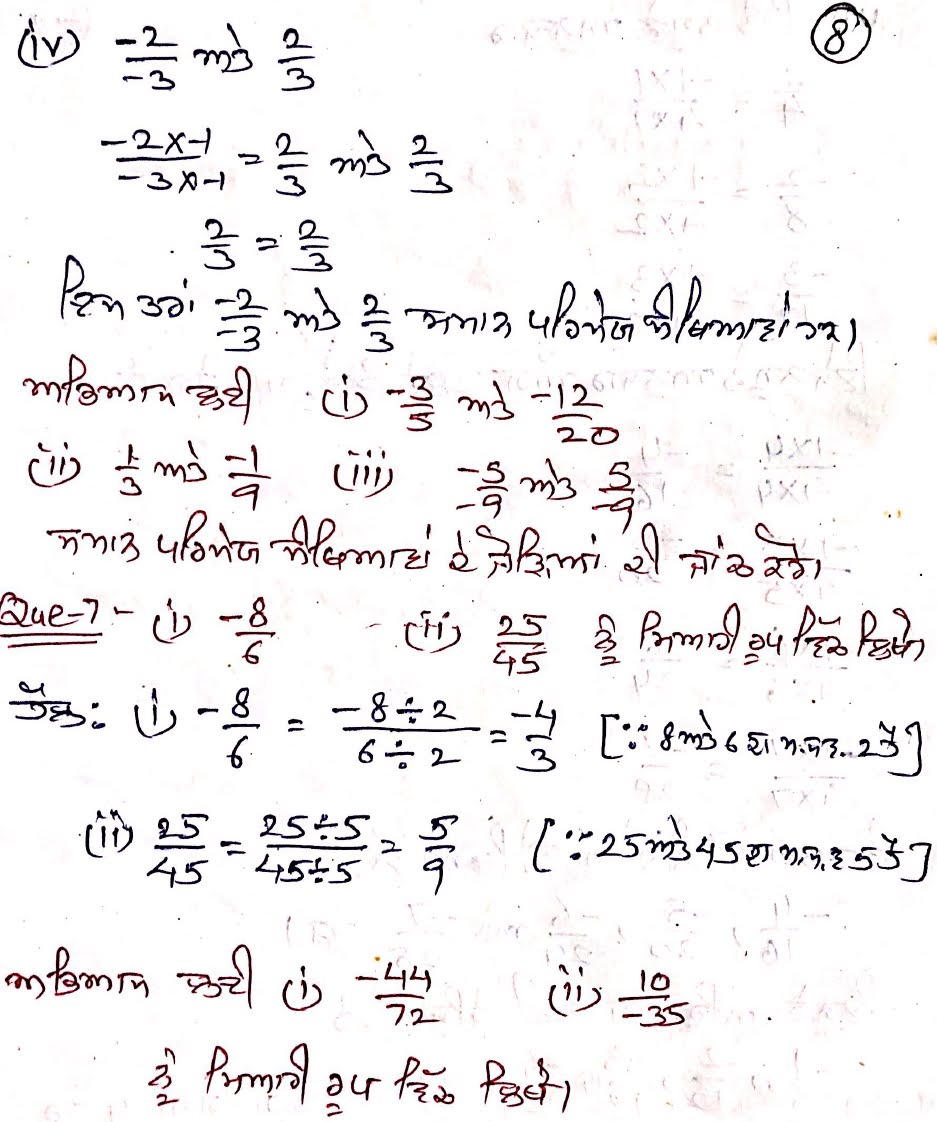 (iv) -2/-3 ਅਤੇ 2/3 (8)
-2×-1/-3×-1 = 2/3 ਅਤੇ 2/3
2/3 = 2/3
ਇਸ ਤਰਾਂ -2/-3 ਅਤੇ 2/3 ਸਮਾਨ ਪਰਿਮੇਯ ਸੰਖਿਆਵਾਂ ਹਨ।
ਅਭਿਆਸ ਲਈ (i) -3/5 ਅਤੇ -12/20
(ii) 1/3 ਅਤੇ -1/9 (iii) -5/-9 ਅਤੇ 5/-9
ਸਮਾਨ ਪਰਿਮੇਯ ਸੰਖਿਆਵਾਂ ਦੇ ਜੋੜਿਆਂ ਦੀ ਜਾਂਚ ਕਰੋ।
Que-7- (i) -8/6 (ii) 25/45 ਨੂੰ ਮਿਆਰੀ ਰੂਪ ਵਿੱਚ ਲਿਖੋ।
ਹੱਲ: (i) -8/6 = -8÷2/6÷2 = -4/3 [∵ 8 ਅਤੇ 6 ਦਾ ਮ.ਸ.ਵ. 2 ਹੈ]
(ii) 25/45 = 25÷5/45÷5 = 5/9 [∵ 25 ਅਤੇ 45 ਦਾ ਮ.ਸ.ਵ 5 ਹੈ]
ਅਭਿਆਸ ਲਈ (i) -44/72 (ii) 10/-35
ਨੂੰ ਮਿਆਰੀ ਰੂਪ ਵਿੱਚ ਲਿਖੋ।